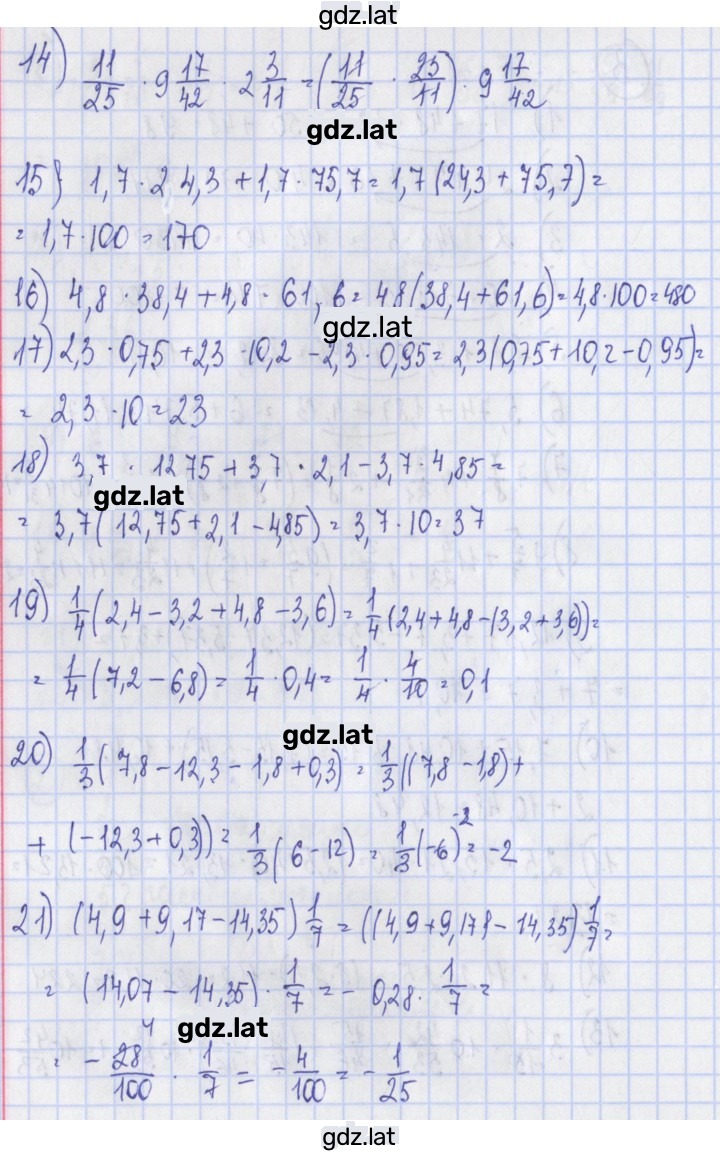 gdz.lat
14) 11/25 · 9 17/42 · 2 3/11 = (11/25 · 25/11) · 9 17/42
gdz.lat
15) 1,7 · 24,3 + 1,7 · 75,7 = 1,7 (24,3 + 75,7) =
= 1,7 · 100 = 170
16) 4,8 · 38,4 + 4,8 · 61,6 = 48 (38,4 + 61,6) = 4,8 · 100 = 480
gdz.lat
17) 2,3 · 0,75 + 2,3 · 10,2 - 2,3 · 0,95 = 2,3 (0,75 + 10,2 - 0,95) =
= 2,3 · 10 = 23
18) 3,7 · 1275 + 3,7 · 2,1 - 3,7 · 4,85 =
gdz.lat
= 3,7 (12,75 + 2,1 - 4,85) = 3,7 · 10 = 37
19) 1/4 (2,4 - 3,2 + 4,8 - 3,6) = 1/4 (2,4 + 4,8 - (3,2 + 3,6)) =
= 1/4 (7,2 - 6,8) = 1/4 · 0,4 = 1/4 · 4/10 = 0,1
gdz.lat
20) 1/3 (7,8 - 12,3 - 1,8 + 0,3) = 1/3 ((7,8 - 1,8) +
+ (-12,3 + 0,3)) = 1/3 (6 - 12) = 1/3 (-6)^-2 = -2
21) (4,9 + 9,17 - 14,35) 1/7 = ((4,9 + 9,17) - 14,35) 1/7 =
= (14,07 - 14,35) · 1/7 = - 0,28 · 1/7 =
gdz.lat
= - 28^4/100 · 1/7 = - 4/100 = - 1/25
gdz.lat